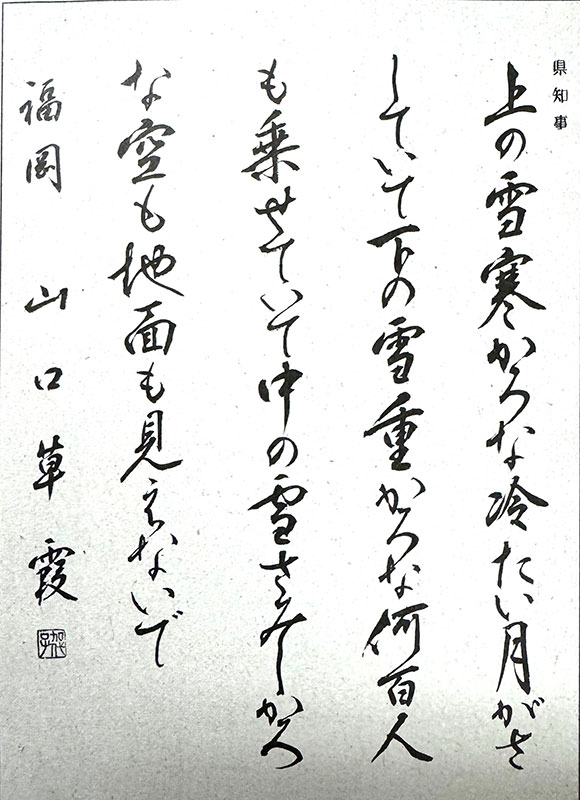 県知事
上の雪寒かろな冷たい月がさ
していて下の雪重かろな何百人
も乗せていて中の雪さみしかろ
な空も地面も見えないで
福岡 山口草霞